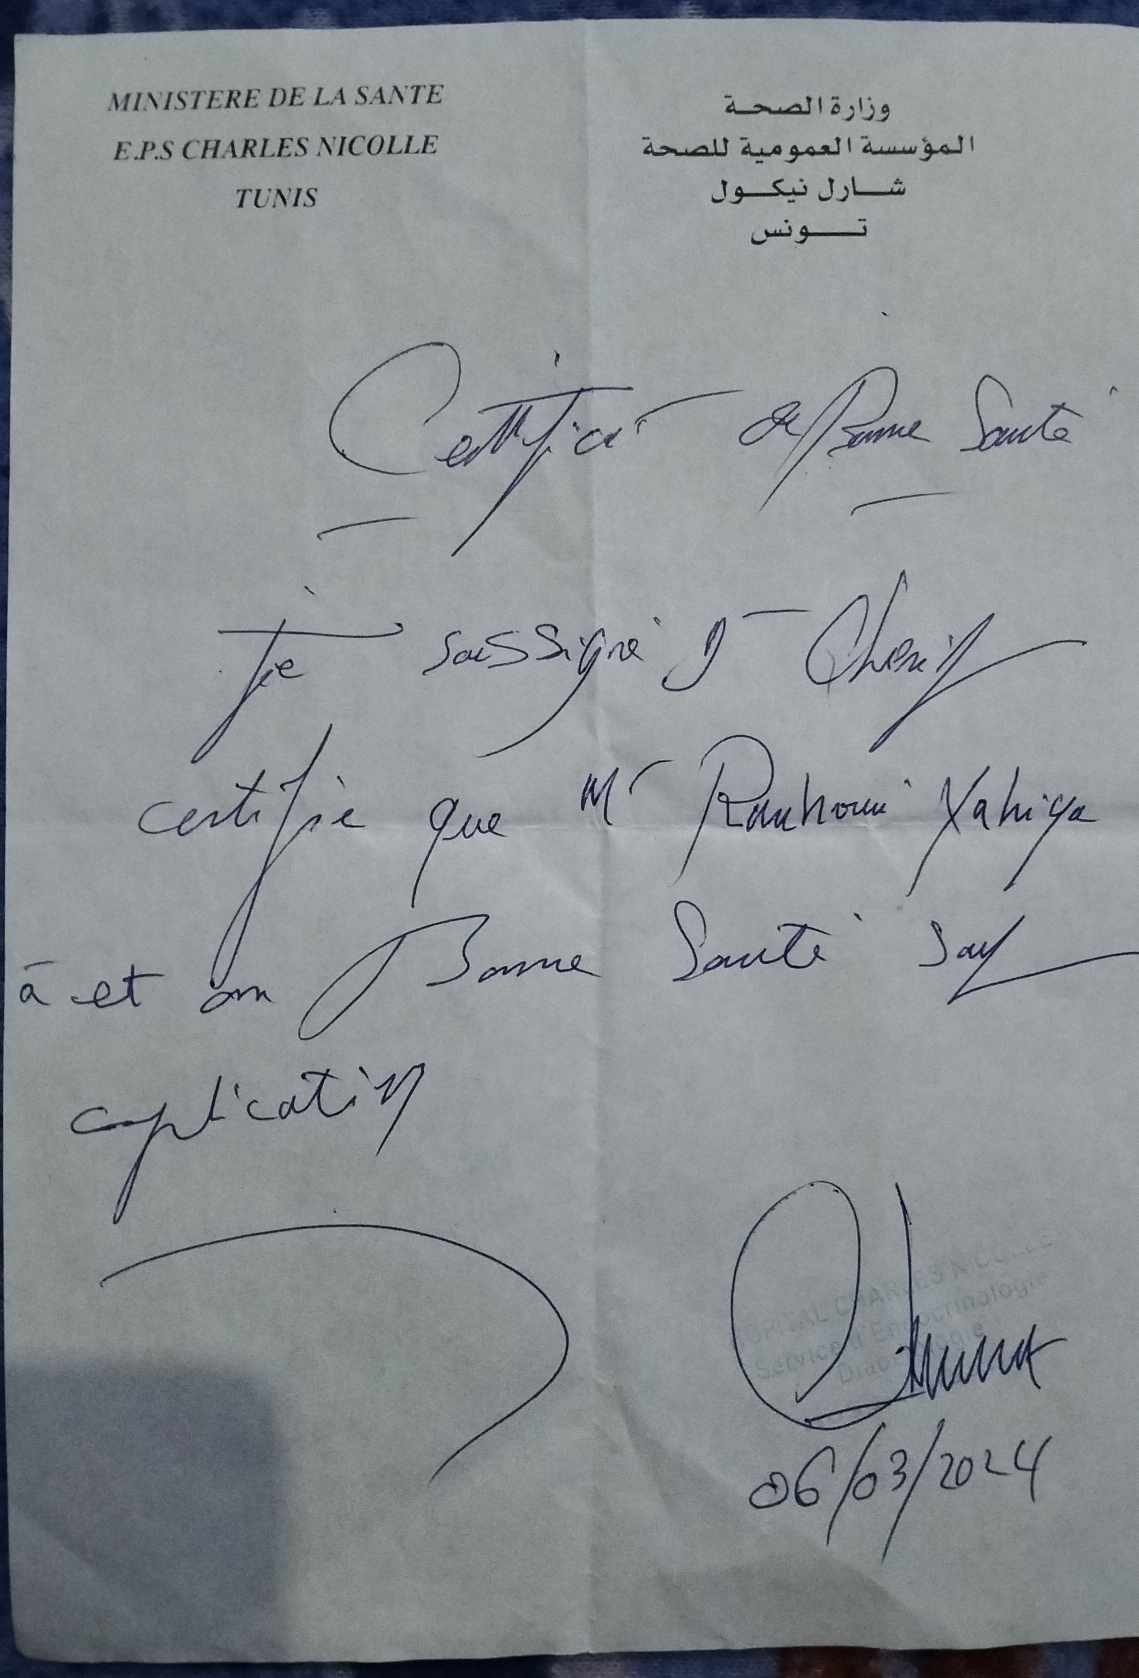 MINISTERE DE LA SANTE
E.P.S CHARLES NICOLLE
TUNIS
وزارة الصحة
المؤسسة العمومية للصحة
شارل نيكول
تونس
Certificat de Bonne Santé
Je soussigné Dr Cherif
certifie que Mr Yahiya
à et en Bonne Santé
complication
HOPITAL CHARLES NICOLLE
Service d'Endocrinologie
06/03/2024